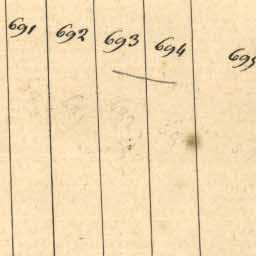 691 692 693 694